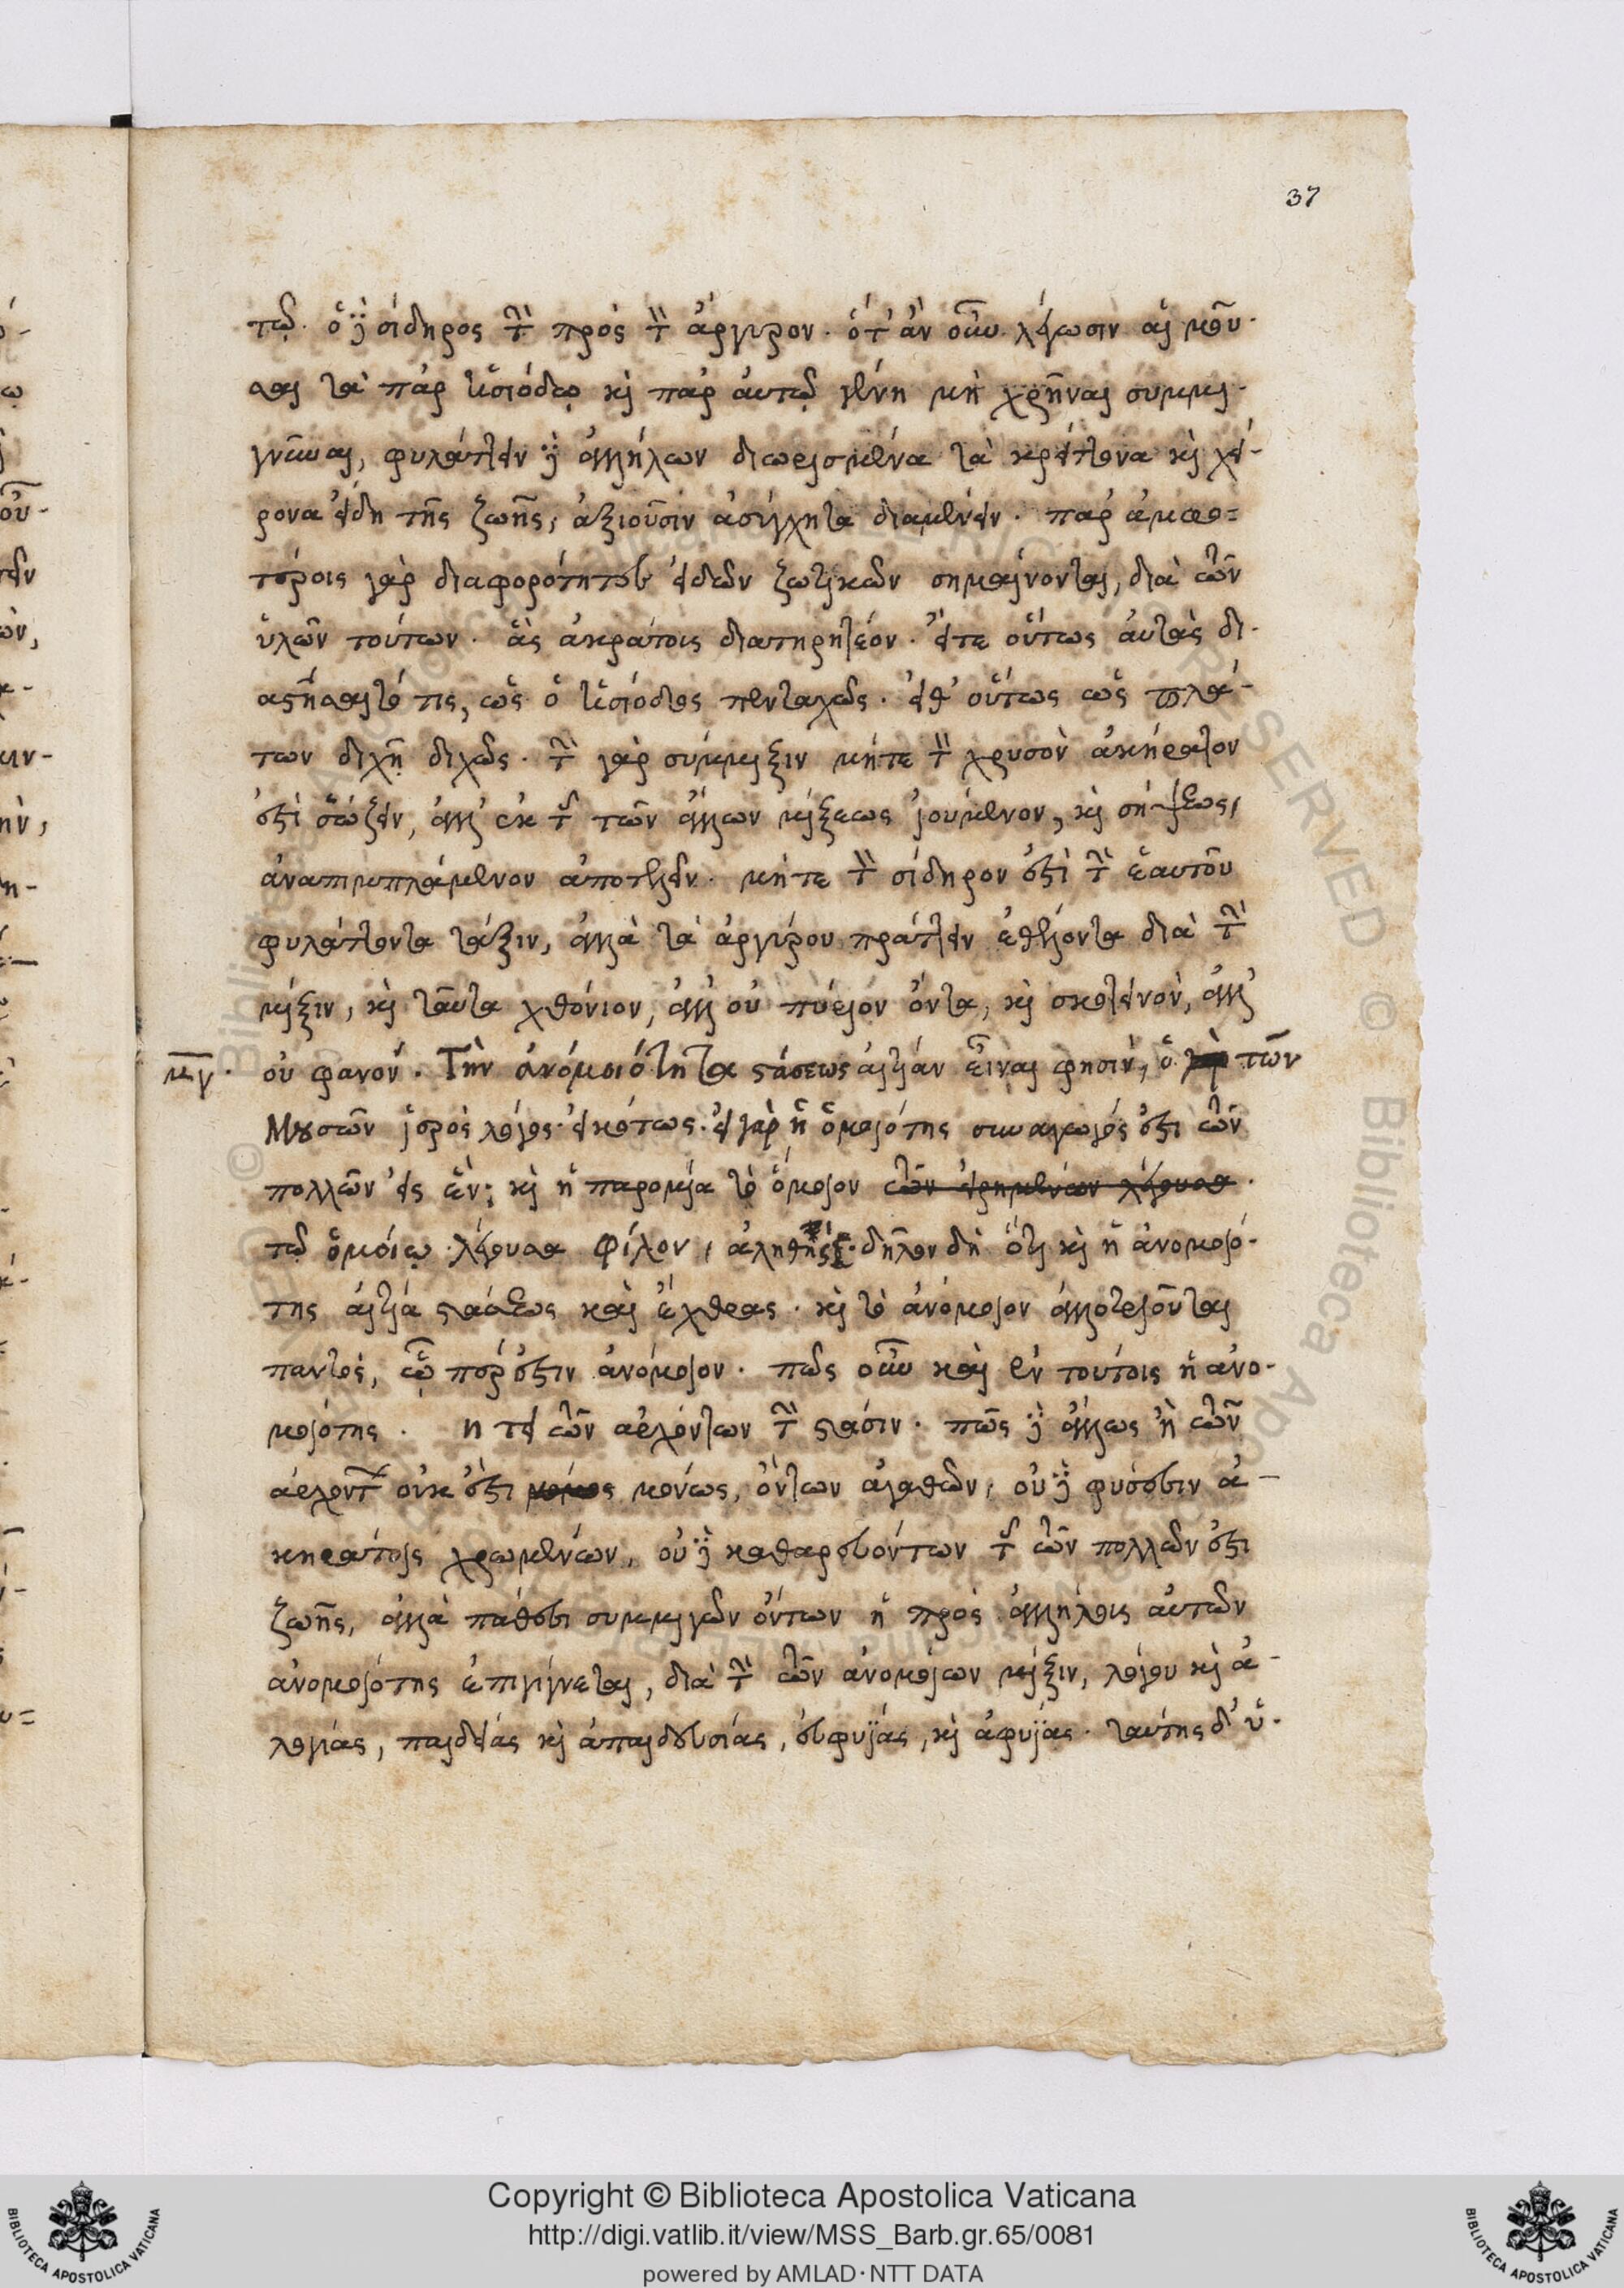 37
τῷ. ὁ δὲ σίδηρος τὴν πρὸς τὸν ἄργυρον. ὅτ' ἂν οὖν λέγωσιν αἱ μοῦ-
σαι τὰ παρ' Ἡσιόδῳ καὶ παρ' αὐτῷ γένη μὴ χρῆναι συμμι-
γνύναι, φυλάττειν δὲ ἀλλήλων διωρισμένα τὰ κρείττονα καὶ χεί-
ρονα εἴδη τῆς ζωῆς, ἀξιοῦσιν ἀσύγχητα διαμένειν. παρ' ἀμφο-
τέροις γὰρ διαφορότητες εἰδῶν ζωτικῶν σημαίνονται, διὰ τῶν
ὑλῶν τούτων. ἃς ἀκράτοις διατηρητέον. εἴτε οὕτως αὐτὰς δι-
αστήσαιτό τις, ὡς ὁ Ἡσίοδος πενταχῶς. εἴθ' οὕτως ὡς πλά-
των διχῇ διχῶς. τὴν γὰρ σύμμιξιν μήτε τὸν χρυσὸν ἀκήρατον
ἔτι σώζειν, ἀλλ' ἐκ τῆς τῶν ἄλλων μίξεως ἰούμενον, καὶ σήψεως,
ἀναπιμπλάμενον ἀποτελεῖν. μήτε τὸν σίδηρον ἔτι τὴν ἑαυτοῦ
φυλάττοντα τάξιν, ἀλλὰ τὰ ἀργύρου πράττειν ἐθέλοντα διὰ τὴν
μίξιν, καὶ ταῦτα χθόνιον, ἀλλ' οὐ πύριον ὄντα, καὶ σκοτεινὸν, ἀλλ'
μγ. οὐ φανόν. Τὴν ἀνόμοιότητα στάσεως αἰτίαν εἶναι φησὶν, ὁ τῶν
Μουσῶν ἱερὸς λόγος. εἰκότως. εἰ γὰρ ἡ ὁμοιότης συναγωγός ἐστι τῶν
πολλῶν εἰς ἕν; καὶ ἡ παροιμία τὸ ὅμοιον τῶν εἰρημένων λέγουσα.
τῷ ὁμοίῳ λέγουσα φίλον, ἀληθής. δῆλον δὴ ὅτι καὶ ἡ ἀνομοιό-
της αἰτία στάσεως καὶ ἔχθρας. καὶ τὸ ἀνόμοιον ἀλλοτριοῦται
παντὸς, ᾧ πέρ ἐστιν ἀνόμοιον. πῶς οὖν καὶ ἐν τούτοις ἡ ἀνο-
μοιότης. ἥ τε τῶν ἀρχόντων τὴν στάσιν. πῶς δὲ ἄλλως ἢ τῶν
ἀρχόντων οὐκ ἔτι μόνως, ὄντων ἀγαθῶν, οὐ δὲ φύσεσιν ἀ-
κηράτοις χρωμένων, οὐ δὲ καθαρευόντων τῆς τῶν πολλῶν ἔτι
ζωῆς, ἀλλὰ πάθεσι συμμιγῶν ὄντων ἡ πρὸς ἀλλήλοις αὐτῶν
ἀνομοιότης ἐπιγίγνεται, διὰ τὴν τῶν ἀνομοίων μίξιν, λόγου καὶ ἀ-
λογίας, παιδείας καὶ ἀπαιδευσίας, εὐφυΐας, καὶ ἀφυΐας. ταύτης δ' ὑ-
Copyright © Biblioteca Apostolica Vaticana
http://digi.vatlib.it/view/MSS_Barb.gr.65/0081
powered by AMLAD·NTT DATA